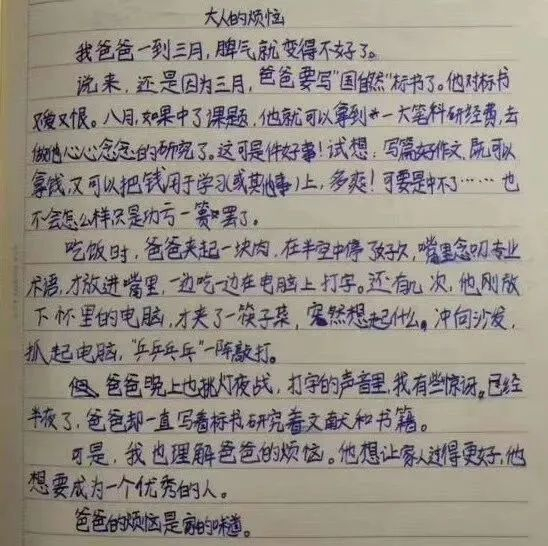 大人的烦恼
我爸爸一到三月,脾气就变得不好了。
说来,还是因为三月,爸爸要写“国自然”标书了。他对标书
又爱又恨。八月,如果中了课题,他就可以拿到一大笔科研经费,去
做他心心念念的研究了。这可是件好事!试想:写篇好作文,既可以
拿钱,又可以把钱用于学习(或其他事)上,多爽!可要是中不了……也
不会怎么样只是功亏一篑罢了。
吃饭时,爸爸夹起一块肉,在半空中停了好久,嘴里念叨专业
术语,才放进嘴里,一边吃一边在电脑上打字。还有几次,他刚放
下怀里的电脑,才夹了一筷子菜,突然想起什么,冲向沙发,
抓起电脑,“乒乒乓乓”一阵敲打。
爸爸晚上也挑灯夜战,打字的声音里,我有些惊讶。已经
半夜了,爸爸却一直写着标书研究着文献和书籍。
可是,我也理解爸爸的烦恼。他想让家人过得更好,他
想要成为一个优秀的人。
爸爸的烦恼是家的味道。